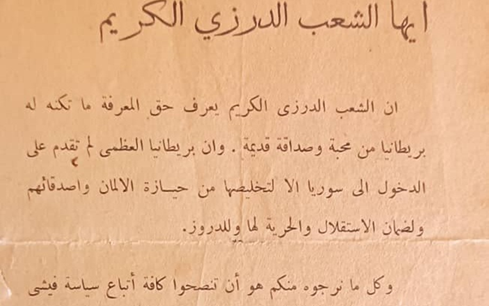 ايها الشعب الدرزي الكريم
ان الشعب الدرزى الكريم يعرف حق المعرفة ما تكنه له
بريطانيا من محبة وصداقة قديمة . وان بريطانيا العظمى لم تقدم على
الدخول الى سوريا الا لتخليصها من حيازة الالمان واصدقائهم
ولضمان الاستقلال والحرية لها وللدروز.
وكل ما نرجوه منكم هو أن تنصحوا كافة أتباع سياسة فيشى